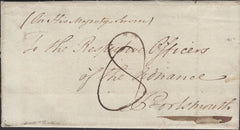 (On His Majesty's Service)
To the Respective Officers
of the Ordnance
8
Portsmouth